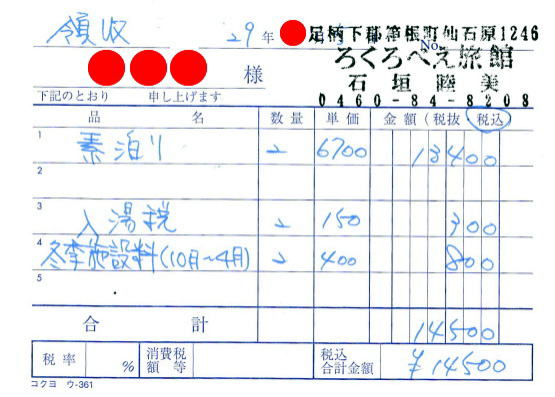 領収 29年
足柄下郡箱根町仙石原1246
ろくろべえ旅館
石垣睦美
0460-84-8208
No.
様
下記のとおり 申し上げます
品 名 数量 単価 金額(税抜・税込)
1 素泊り 2 6700 13400
2
3 入湯税 2 150 300
4 冬季施設料(10月~4月) 2 400 800
5
合 計 14500
税率 % 消費税額等 税込合計金額 ¥14500
コクヨ ウ-361